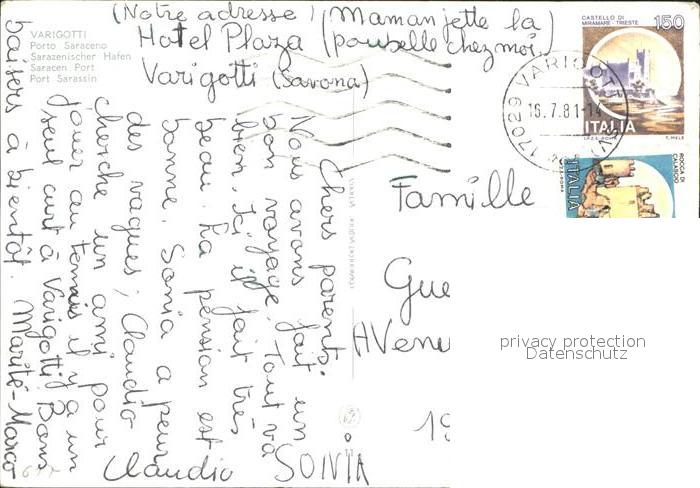 VARIGOTTI
Porto Saraceno
Sarazenischer Hafen
Saracen Port
Port Sarassin
(Notre adresse)
Hotel Plaza
Varigotti (Savona)
(Maman jette la
poubelle chez moi)
Chers parents,
Nous avons fait un
bon voyage. Tout va
bien. Ici il fait très
beau. La pension est
bonne. Sonia a peur
des vagues, Claudio
cherche un ami pour
jouer au tennis il y a un
seul curt à Varigotti. Bons
baisers à bientôt. Marité-Marco
Claudio SONIA
Famille
Gue
Avenu
19
CASTELLO DI
MIRAMARE - TRIESTE
150
ITALIA
17029 VARIGOTTI
16.7.81-14
ROCCA DI
CALASCIO
ITALIA
privacy protection
Datenschutz